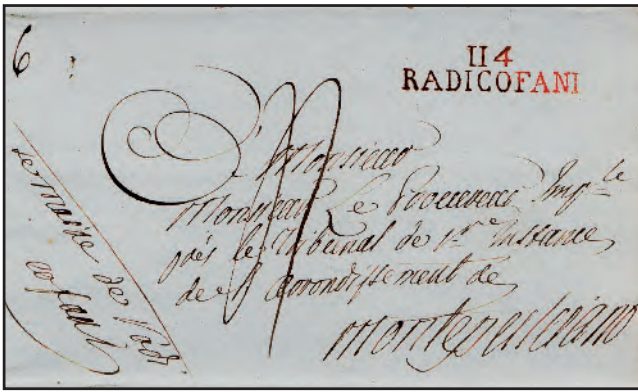 6
114
RADICOFANI
A Monsieur
Monsieur Le Procureur Imp.le
près le Tribunal de 1re Instance
de l'Arrondissement de
Montepulciano
Le maire de Radi
cofani